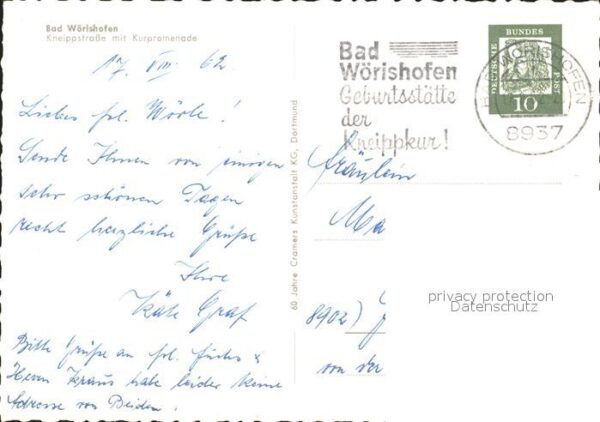 Bad Wörishofen
Kneippstraße mit Kurpromenade
17. VIII. 62.
Liebes frl. Wörle!
Sende Ihnen von einigen
sehr schönen Tagen
recht herzliche Grüße
Ihre
Käte Graf
Bitte Grüße an frl. Fuchs &
Herrn Kraus habe leider keine
Adresse von Beiden.
60 Jahre Cramers Kunstanstalt KG, Dortmund
Bad
Wörishofen
Geburtsstätte
der
Kneippkur!
BAD WÖRISHOFEN
8937
DEUTSCHE
BUNDES
POST
10
Fräulein
Ma
8902)
von der
privacy protection
Datenschutz